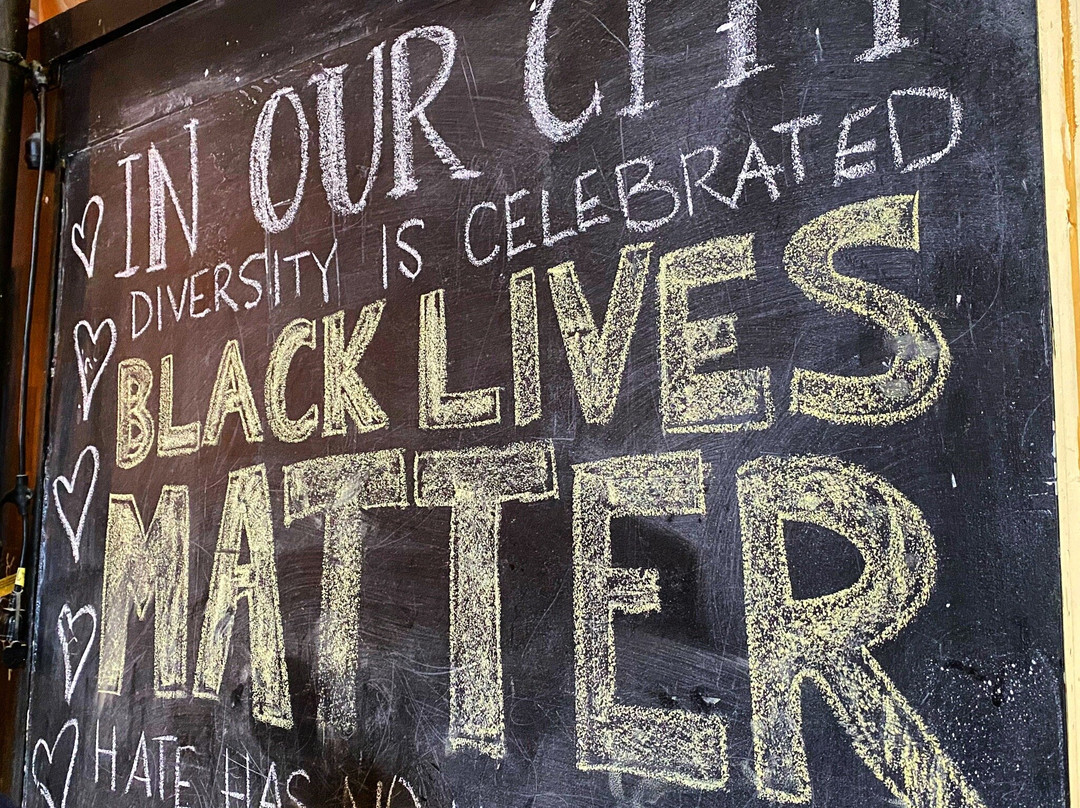 IN OUR CITY
DIVERSITY IS CELEBRATED
BLACK LIVES
MATTER
HATE HAS NO